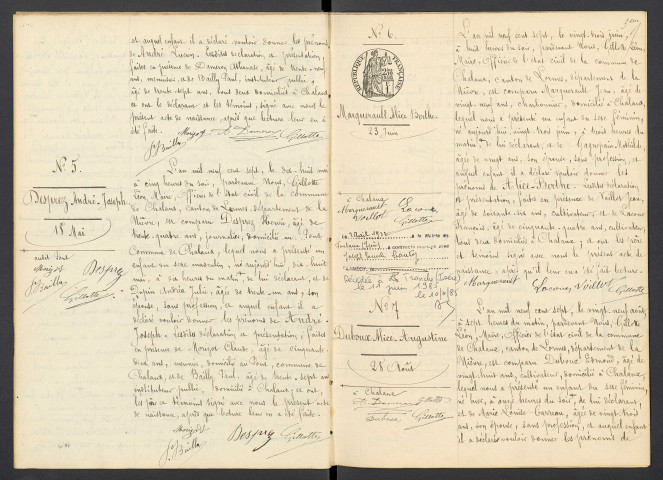 et auquel enfant il a déclaré vouloir donner les prénoms
de André Lucien. Lesdites déclaration et présentation
faites en présence de Dameron Athanase, âgé de trente-neuf
ans, menuisier, et de Bailly Paul, instituteur public
âgé de trente-sept ans, tous deux domiciliés à Chalaux
et ont le déclarant et les témoins signé avec nous le
présent acte de naissance, après que lecture leur en a
été faite.
Gillotte
N° 5.
Desprez André-Joseph
18 Mai
L'an mil neuf cent sept, le dix-huit mai
à cinq heures du soir, pardevant Nous, Gillotte
Léon, Maire, Officier de l'état civil de la Commune
de Chalaux, canton de Lormes, département de la
Nièvre, est comparu Desprez Henri, âgé de
trente-quatre ans, journalier, domicilié au
Commune de Chalaux, lequel nous a présenté un
enfant du sexe masculin, né aujourd'hui dix-huit
mai, à dix heures du matin, de lui déclarant et de
Dupin Andrée Julie, âgée de trente-un ans, son
épouse, sans profession, et auquel enfant il a
déclaré vouloir donner les prénoms de André-
Joseph. Lesdites déclaration et présentation faites
en présence de Morizot Claude, âgé de cinquante-
ans, domicilié au commune de
Chalaux, et de Bailly Paul, âgé de trente-sept ans
instituteur public, domicilié à Chalaux, et ont
les père et témoins signé avec nous le présent acte
de naissance, après que lecture leur en a été faite.
Morizot
Bailly
Desprez
Gillotte
Morizot
Bailly
Desprez
Gillotte
N° 6.
RÉPUBLIQUE FRANÇAISE
Marguerault Alice Berthe
23 Juin
à Chalaux
Marguerault
Voillot
Lacour
Gillotte
à contracté mariage avec
Joseph
Décédée à
le 11 juin 1985
le
N° 7
Duboux Alice Augustine
28 Août
à Chalaux
Gillotte
L'an mil neuf cent sept, le vingt-trois juin,
à huit heures du soir, pardevant Nous, Gillotte Léon
Maire, Officier de l'état civil de la commune de
Chalaux, canton de Lormes, département de la
Nièvre, est comparu Marguerault Jean, âgé de
vingt-neuf ans, charbonnier, domicilié à Chalaux,
lequel nous a présenté un enfant du sexe féminin,
né aujourd'hui vingt-trois juin, à trois heures du
matin, de lui déclarant, et de Gagnepain Mathilde,
âgée de vingt ans, son épouse, sans profession, et
auquel enfant il a déclaré vouloir donner les
prénoms de Alice-Berthe. Lesdites déclaration
et présentation, faites en présence de Voillot Jean,
âgé de soixante-six ans, cultivateur, et de Lacour
François, âgé de cinquante-quatre ans, cultivateur
tous deux domiciliés à Chalaux, et ont les père
et témoins signé avec nous le présent acte de
naissance, après qu'il leur en a été fait lecture.
Marguerault
Lacour
Voillot
Gillotte
L'an mil neuf cent sept, le vingt-neuf août,
à sept heures du matin, pardevant Nous, Gillotte
Léon, Maire, Officier de l'état civil de la commune
de Chalaux, canton de Lormes, département de la
Nièvre, est comparu Duboux Edmond, âgé de
vingt-huit ans, cultivateur, domicilié à Chalaux,
lequel nous a présenté un enfant du sexe féminin,
né hier, à onze heures du soir, de lui déclarant,
et de Marie Louise Carreau, âgée de vingt-trois
ans, son épouse, sans profession, et auquel enfant
il a déclaré vouloir donner les prénoms de